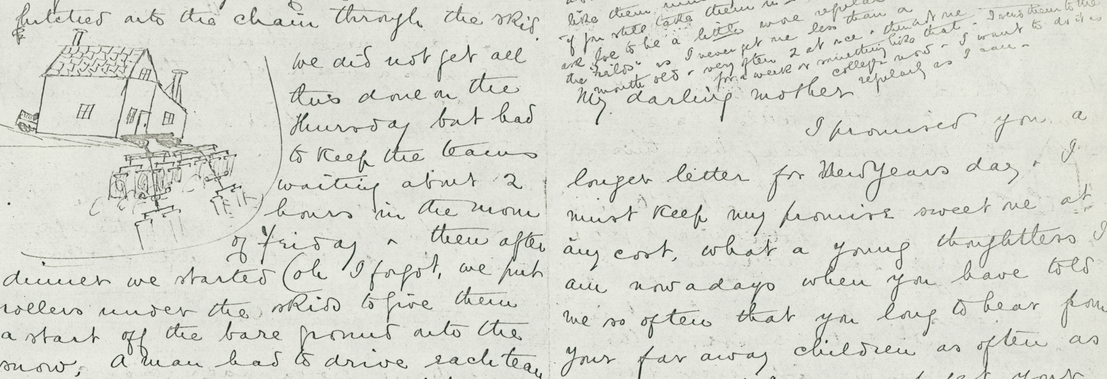 hitched onto the chain through the skids
we did not get all
this done on the
Thursday but had
to keep the teams
waiting about 2
hours in the morn
of Friday & then after
dinner we started (oh I forgot, we put
rollers under the skids to give them
a start off the bare ground onto the
snow, A man had to drive each team
like them
if you still take them
ask Joe to be a little more regular
the "Fields" as I never get me less than a
month old & very often 2 at once & then not one
for a week or something like that. I send them to the
college and I want to do it as
regularly as I can.
My darling mother
I promised you a
longer letter for New Years day, & I
must keep my promise sweet one at
any cost, what a young thoughtless I
am nowadays when you have told
me so often that you long to hear from
your far away children as often as